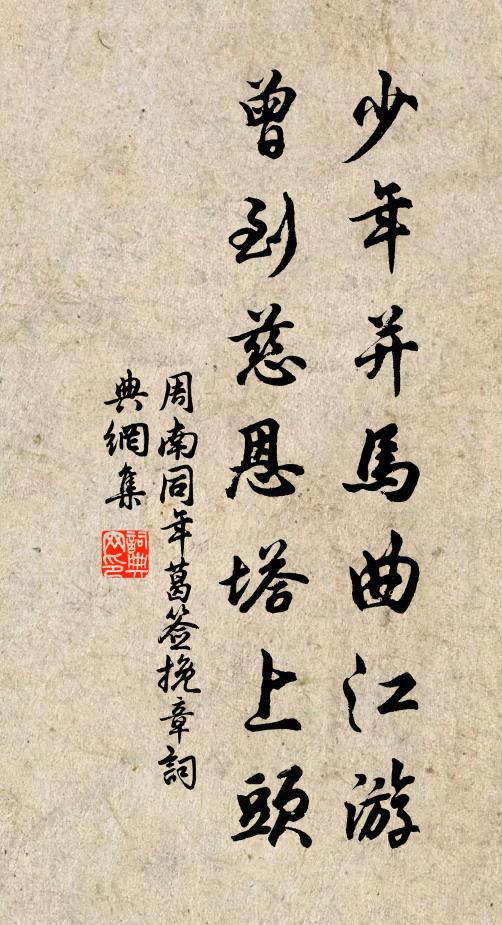 少年并馬曲江游
曾到慈恩塔上頭
周南同年葛签挽章詞
典網集
詞典
网印